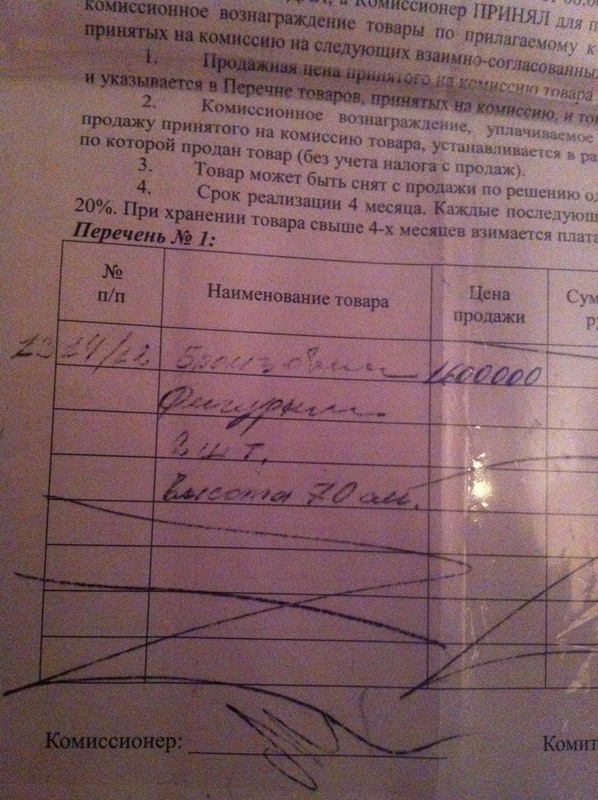 а Комиссионер ПРИНЯЛ для п
комиссионное вознаграждение товары по прилагаемому к
принятых на комиссию на следующих взаимно-согласованных
1. Продажная цена принятого на комиссию товара
и указывается в Перечне товаров, принятых на комиссию, и тов
2. Комиссионное вознаграждение, уплачиваемое
продажу принятого на комиссию товара, устанавливается в ра
по которой продан товар (без учета налога с продаж).
3. Товар может быть снят с продажи по решению од
4. Срок реализации 4 месяца. Каждые последующ
20%. При хранении товара свыше 4-х месяцев взимается плата
Перечень № 1:
№ п/п Наименование товара Цена продажи Сум
1600000
Фигурки
шт.
Высота 70 см.
Комиссионер: Комит